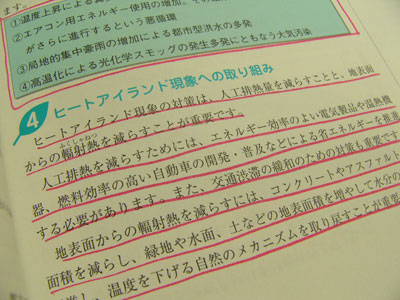 ます。
①温度上昇による
②エアコン用エネルギー使用の増加。その
がさらに進行するという悪循環
③局地的集中豪雨の増加による都市型洪水の多発
④高温化による光化学スモッグの発生多発にともなう大気汚染
4 ヒートアイランド現象への取り組み
ヒートアイランド現象の対策は、人工排熱量を減らすことと、地表面
ふくしゃねつ
からの輻射熱を減らすことが重要です。
人工排熱を減らすためには、エネルギー効率のよい電気製品や温熱機
器、燃料効率の高い自動車の開発・普及などによる省エネルギーを推進
する必要があります。また、交通渋滞の緩和のための対策も重要です
地表面からの輻射熱を減らすには、コンクリートやアスファルト
面積を減らし、緑地や水面、土などの地表面積を増やして水分の
し、温度を下げる自然のメカニズムを取り戻すことが重要